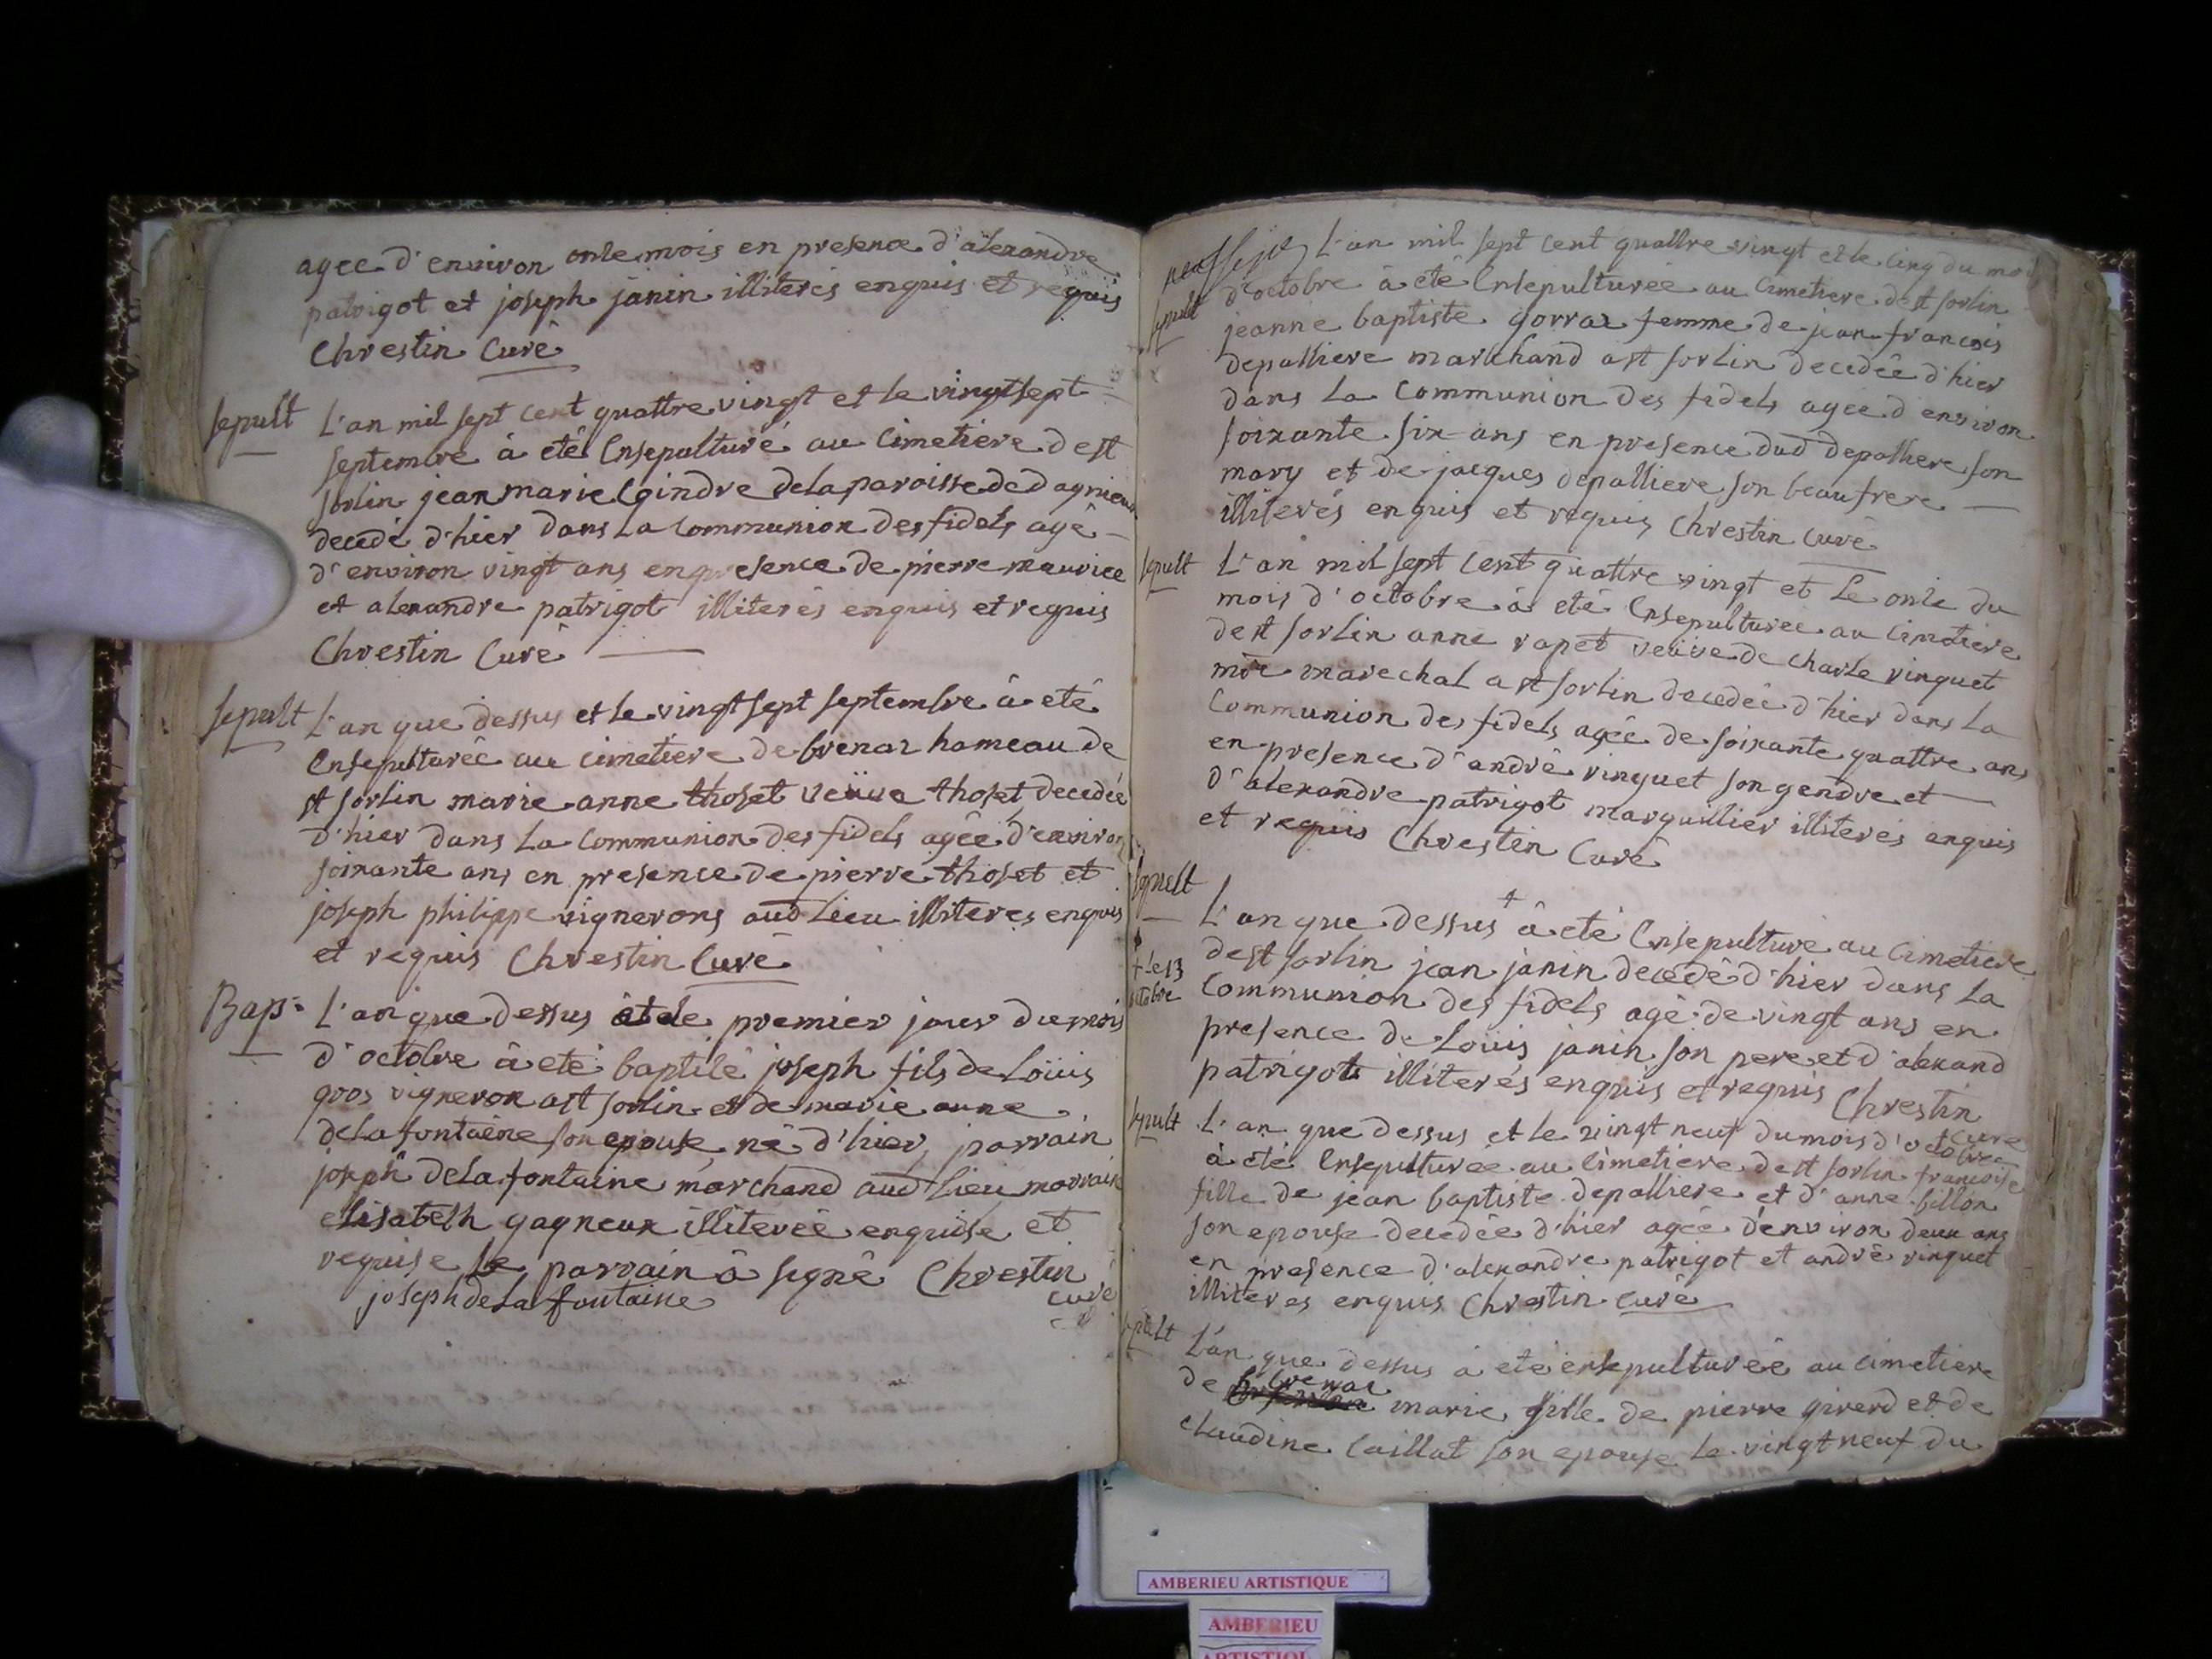 agee d'environ onze mois en presence d'alexandre
patrigot et joseph janin illiterés enquis et requis
Chrestin Curé
sepult
L'an mil sept cent quattre vingt et le vingt sept
septembre à eté Ensepulturé au Cimetiere de st
sorlin jean marie Cgindre de la paroisse de dagnieux
decedé d'hier dans La Communion des fidels agé
d'environ vingt ans en presence de pierre maurice
et alexandre patrigot illiterés enquis et requis
Chrestin Curé
sepult
L'an que dessus et le vingt sept septembre à eté
Ensepulturée au cimetiere de brenaz hameau de
st sorlin marie anne thoset veüve thoset decedée
d'hier dans La Communion des fidels agée d'environ
soixante ans en presence de pierre thoset et
joseph philippe vignerons aud Lieu illiteres enquis
et requis Chrestin Curé
Bap:
L'an que dessus et le premier jour du mois
d'octobre à eté baptisé joseph fils de Loüis
gros vigneron a st sorlin et de marie anne
de La fontaine son epouse né d'hier, parrain
joseph de La fontaine marchand aud Lieu marraine
elisabeth gagneux illiterée enquise et
requise Le parrain a signé Chrestin
curé
joseph de La fontaine
sepult
L'an mil sept cent quattre vingt et le cinq du mois
d'octobre à eté Ensepulturée au Cimetiere de st sorlin
jeanne baptiste gorraz femme de jean francois
depalliere marchand a st sorlin decedée d'hier
dans La Communion des fidels agée d'environ
soixante six ans en presence dud depalliere son
mary et de jacques depalliere son beaufrere
illiterés enquis et requis Chrestin curé
sepult
L'an mil sept cent quattre vingt et Le onze du
mois d'octobre à eté Ensepulturée au Cimetiere
de st sorlin anne rapet veüve de charle vinguet
mtre marechal a st sorlin decedée d'hier dans La
Communion des fidels agée de soixante quattre ans
en presence d'andré vinguet son gendre et
d'alexandre patrigot marguillier illiterés enquis
et requis Chrestin Curé
sepult
L'an que dessus + à eté Ensepulturé au Cimetiere
+ le 13
octobre
de st sorlin jean janin decedé d'hier dans La
Communion des fidels agé de vingt ans en
presence de Loüis janin son pere et d'alexand
patrigot illiterés enquis et requis Chrestin
Curé
sepult
L'an que dessus et le vingt neuf du mois d'octobre
à eté Ensepulturée au Cimetiere de st sorlin francoise
fille de jean baptiste depalliere et d'anne billon
son epouse decedée d'hier agée d'environ deux ans
en presence d'alexandre patrigot et andré vinguet
illiteres enquis Chrestin curé
sepult
L'an que dessus à eté ensepulturée au cimetiere
de brenaz marie fille de pierre girerd et de
claudine Caillat son epouse le vingt neuf du
AMBERIEU ARTISTIQUE
AMBERIEU
ARTISTIQUE